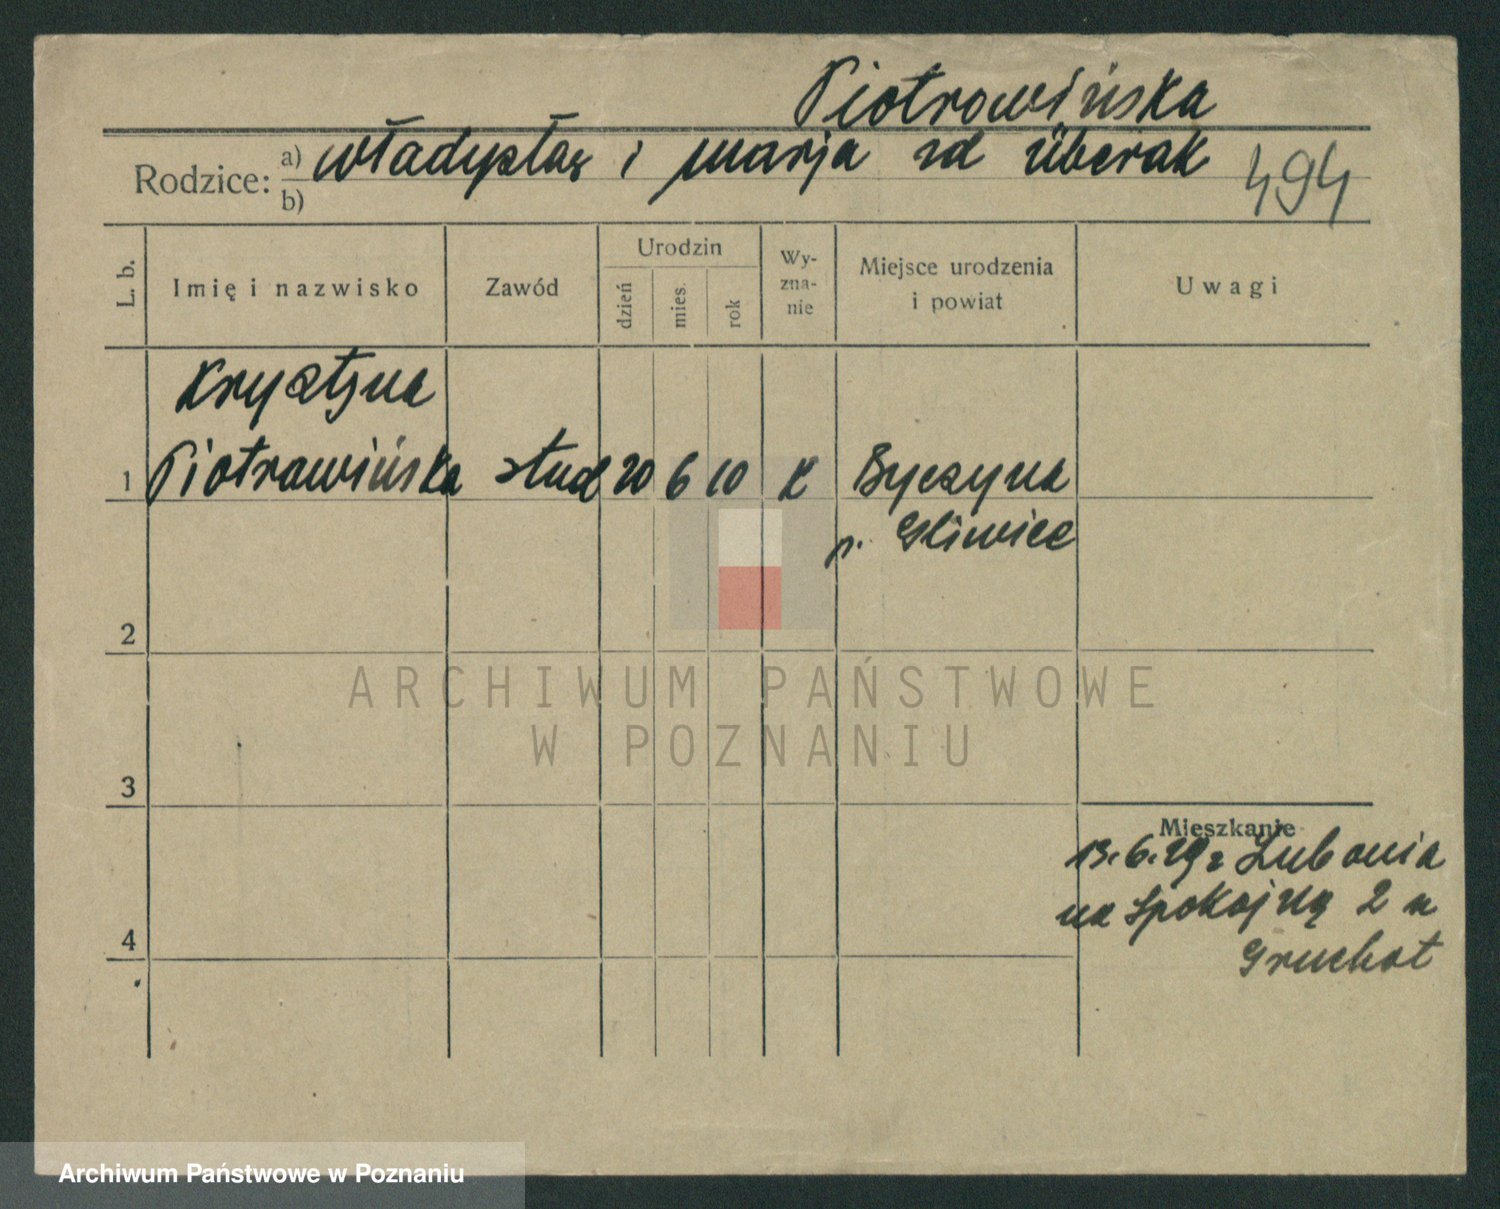 Piotrowińska
Rodzice: a) Władysław i Marja zd Überak
b)
494
L. b.
Imię i nazwisko
Zawód
Urodzin
dzień
mies.
rok
Wy-
zna-
nie
Miejsce urodzenia
i powiat
Uwagi
Krystyna
1 Piotrowińska stud 20 6 10 K Byczyna
p. Gliwice
2
ARCHIWUM PAŃSTWOWE
W POZNANIU
3
Mieszkanie
13.6.29 z Lubonia
na Spokojną 2 u
Gruchot
4
Archiwum Państwowe w Poznaniu